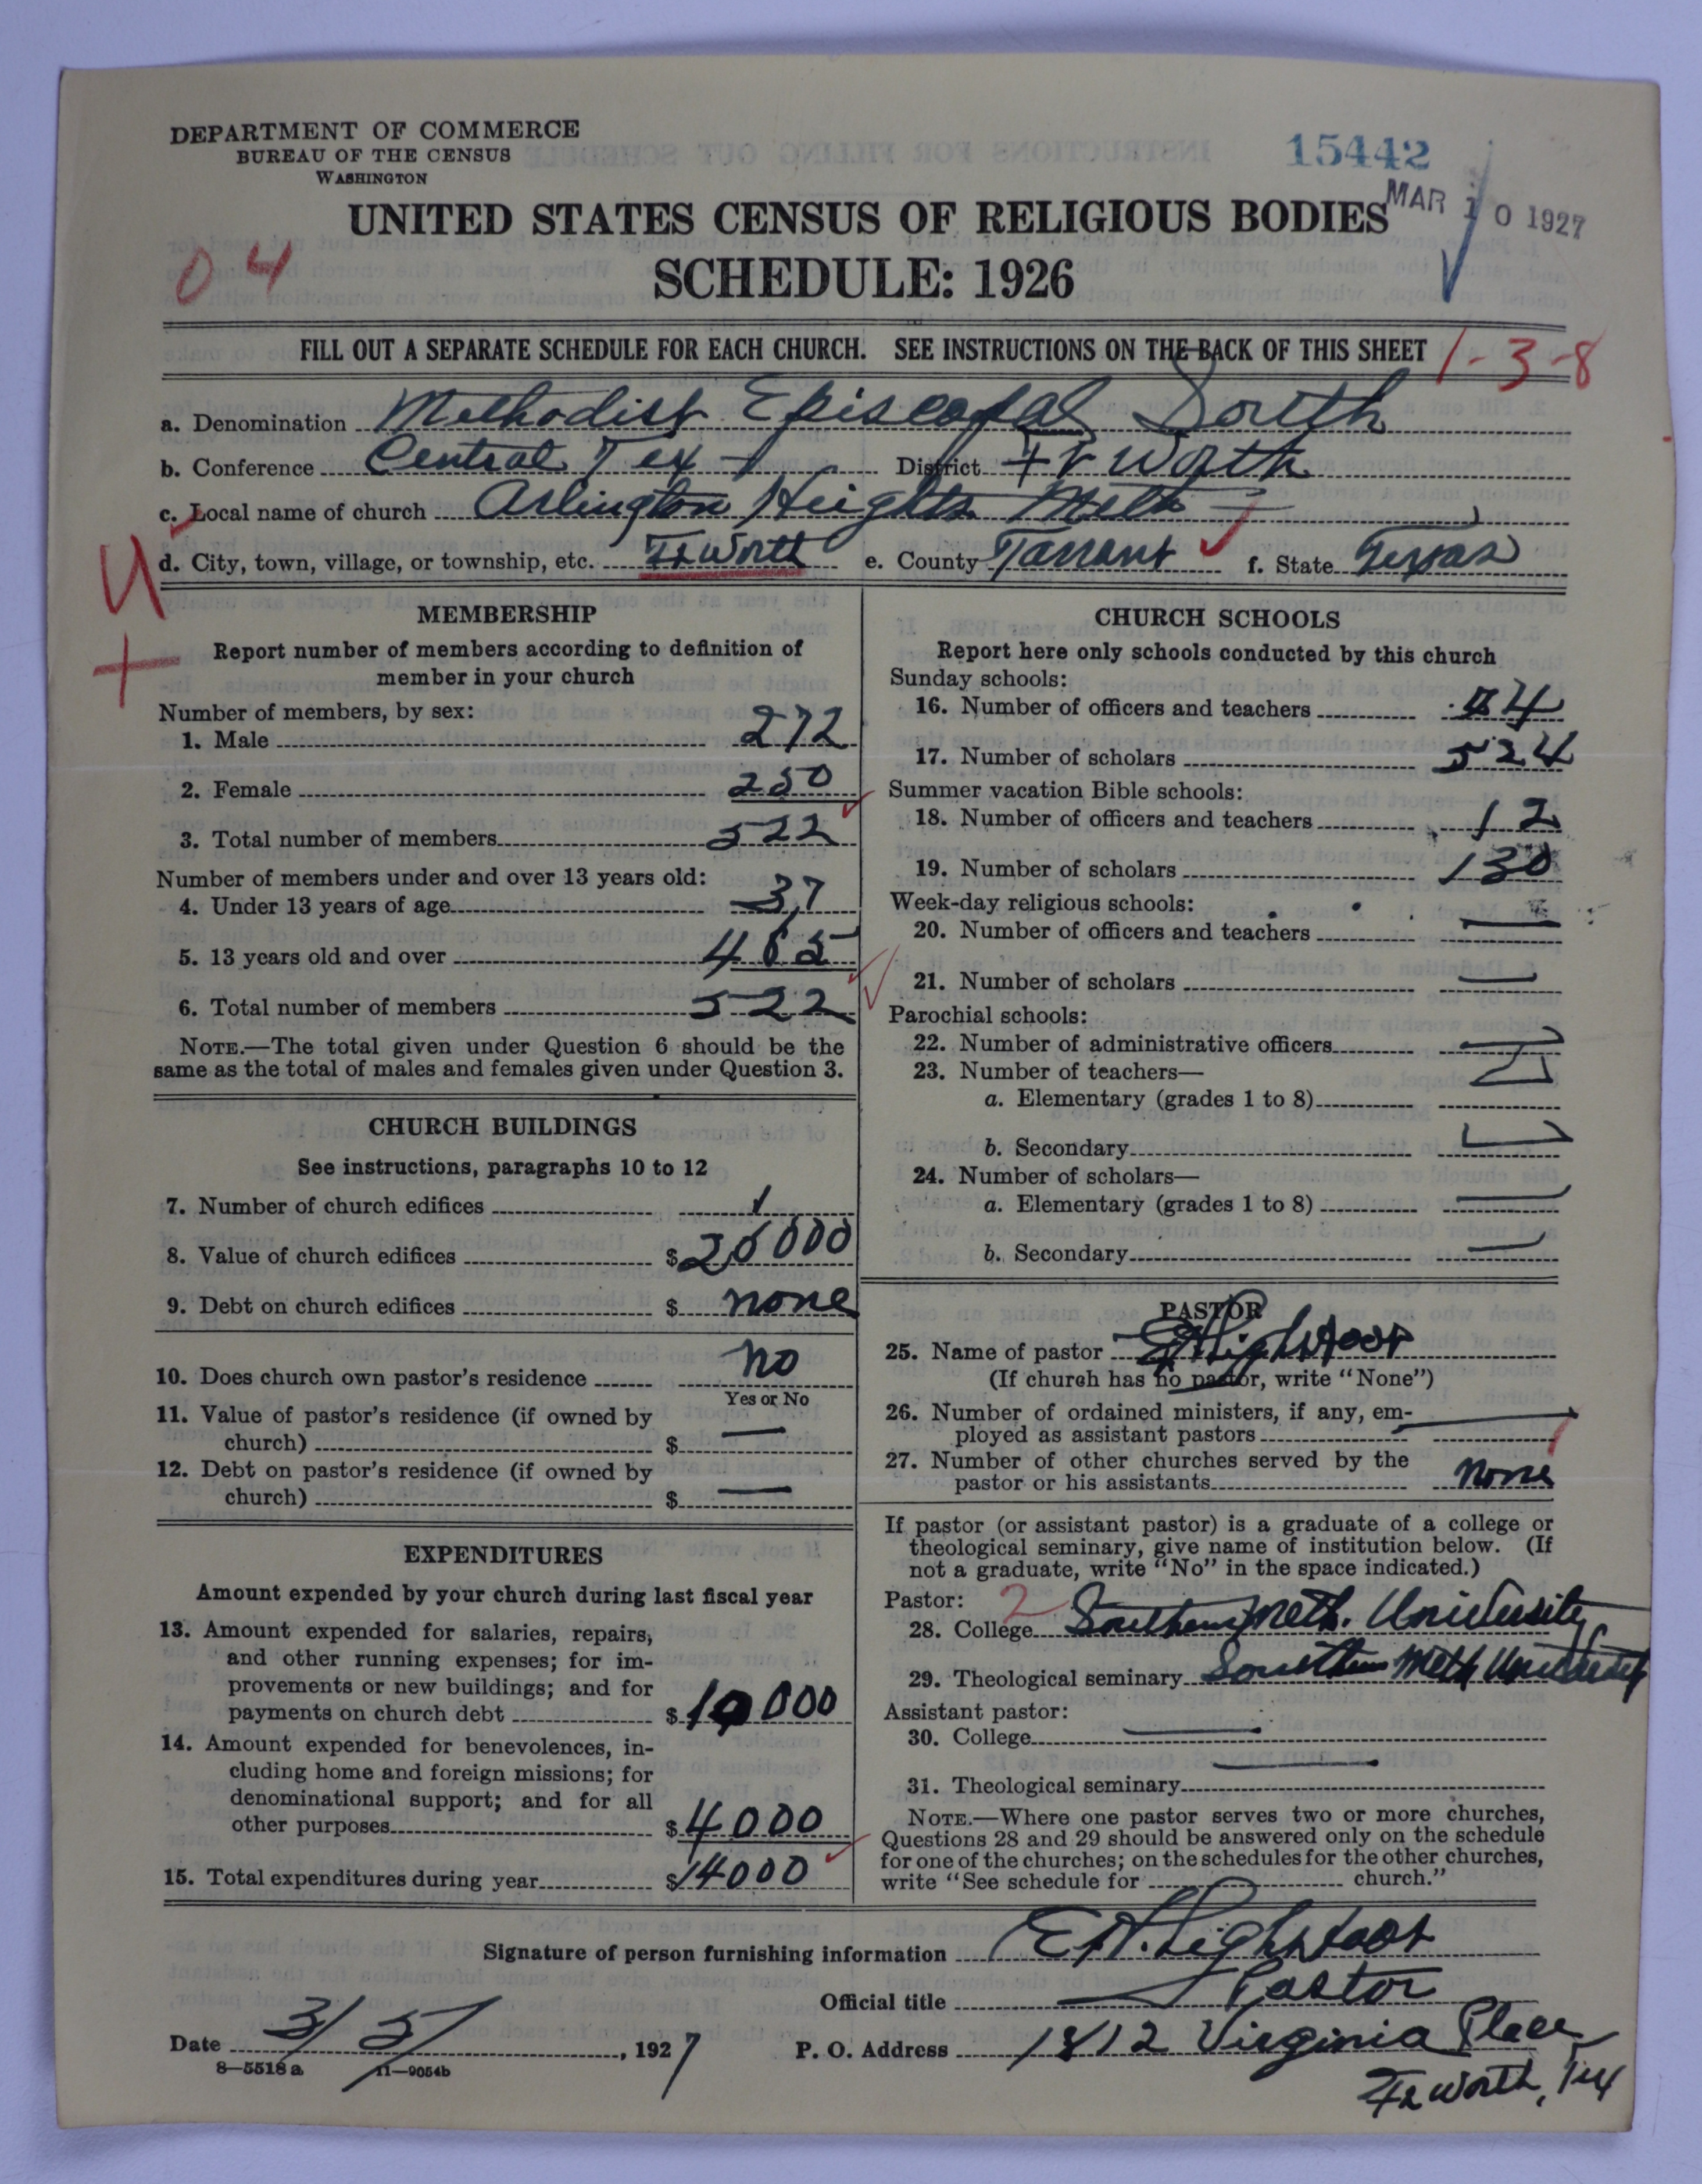 DEPARTMENT OF COMMERCE
BUREAU OF THE CENSUS
WASHINGTON
15442
MAR 10 1927
UNITED STATES CENSUS OF RELIGIOUS BODIES
SCHEDULE: 1926
04
FILL OUT A SEPARATE SCHEDULE FOR EACH CHURCH. SEE INSTRUCTIONS ON THE BACK OF THIS SHEET
1-3-8
a. Denomination Methodist Episcopal South
b. Conference Central Tex District Ft Worth
c. Local name of church Arlington Heights Meth
d. City, town, village, or township, etc. Ft Worth e. County Tarrant f. State Texas
MEMBERSHIP
Report number of members according to definition of
member in your church
Number of members, by sex:
1. Male 272
2. Female 250
3. Total number of members 522
Number of members under and over 13 years old:
4. Under 13 years of age 37
5. 13 years old and over
6. Total number of members 522
NOTE.—The total given under Question 6 should be the
same as the total of males and females given under Question 3.
CHURCH BUILDINGS
See instructions, paragraphs 10 to 12
7. Number of church edifices 1
8. Value of church edifices $
9. Debt on church edifices $ none
10. Does church own pastor's residence no
Yes or No
11. Value of pastor's residence (if owned by
church) $ —
12. Debt on pastor's residence (if owned by
church) $ —
EXPENDITURES
Amount expended by your church during last fiscal year
13. Amount expended for salaries, repairs,
and other running expenses; for im-
provements or new buildings; and for
payments on church debt $ 10000
14. Amount expended for benevolences, in-
cluding home and foreign missions; for
denominational support; and for all
other purposes $ 4000
15. Total expenditures during year $ 14000
CHURCH SCHOOLS
Report here only schools conducted by this church
Sunday schools:
16. Number of officers and teachers
17. Number of scholars 524
Summer vacation Bible schools:
18. Number of officers and teachers 12
19. Number of scholars 130
Week-day religious schools:
20. Number of officers and teachers —
21. Number of scholars —
Parochial schools:
22. Number of administrative officers —
23. Number of teachers—
a. Elementary (grades 1 to 8)
b. Secondary —
24. Number of scholars—
a. Elementary (grades 1 to 8) —
b. Secondary —
PASTOR
25. Name of pastor E H Lightfoot
(If church has no pastor, write "None")
26. Number of ordained ministers, if any, em-
ployed as assistant pastors —
27. Number of other churches served by the
pastor or his assistants none
If pastor (or assistant pastor) is a graduate of a college or
theological seminary, give name of institution below. (If
not a graduate, write "No" in the space indicated.)
Pastor: 2
28. College Southern Meth. University
29. Theological seminary Southern Meth University
Assistant pastor:
30. College —
31. Theological seminary —
NOTE.—Where one pastor serves two or more churches,
Questions 28 and 29 should be answered only on the schedule
for one of the churches; on the schedules for the other churches,
write "See schedule for church."
Signature of person furnishing information E H. Lightfoot
Official title Pastor
Date 3/5/, 1927
P. O. Address 1812 Virginia Place
Ft Worth, Tex
8—5518 a 11—9054b